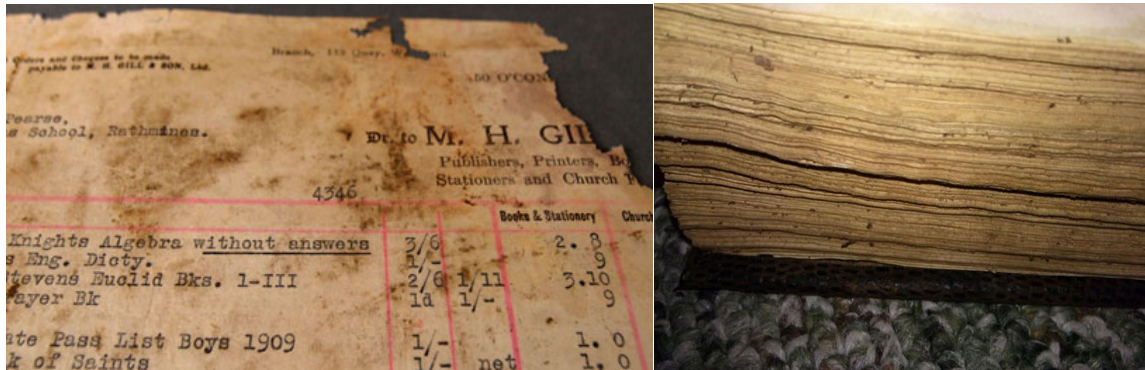 Orders and Cheques to be made
payable to M. H. GILL & SON, Ltd.
Branch, 112 Quay,
50 O'CON
Pearse,
s School, Rathmines.
Dr. to M. H. GILL
Publishers, Printers, Bo
Stationers and Church F
4346
Books & Stationery Church
Knights Algebra without answers 3/6 2. 8
s Eng. Dicty. 1/- 9
Stevens Euclid Bks. 1-III 2/6 1/11 3.10
ayer Bk 1d 1/- 9
ate Pass List Boys 1909 1/- 1. 0
k of Saints 1/- net 1. 0